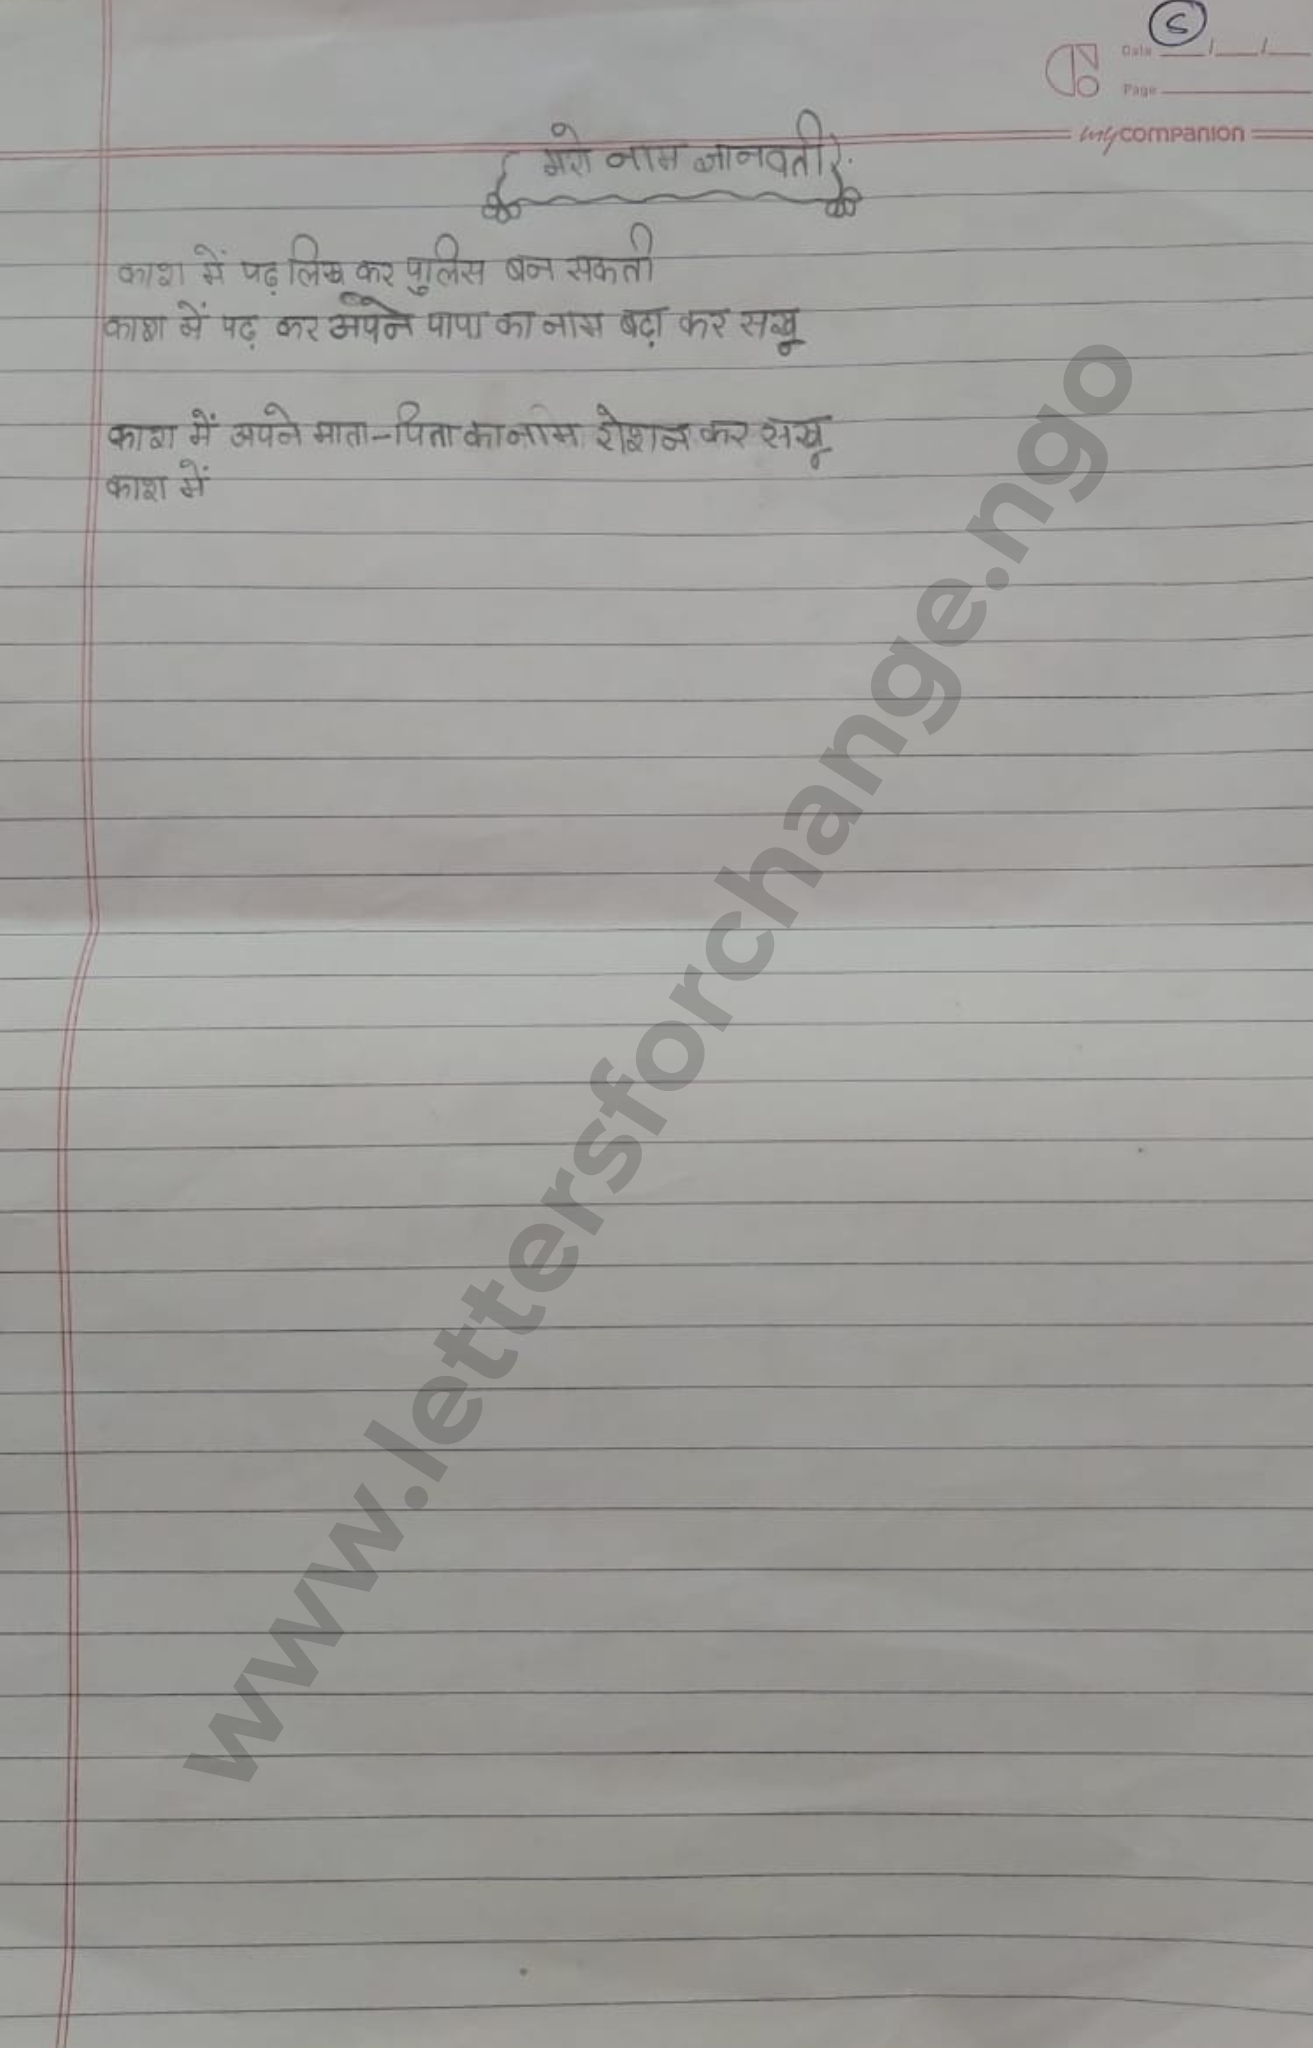 5
Date / /
Page
mycompanion
मेरो नाम जानवती
काश में पढ़ लिख कर पुलिस बन सकती
काश में पढ़ कर अपने पापा का नाम बढ़ा कर सखू
काश में अपने माता-पिता का नाम रोशन कर सखू
काश में
www.lettersforchange.ngo